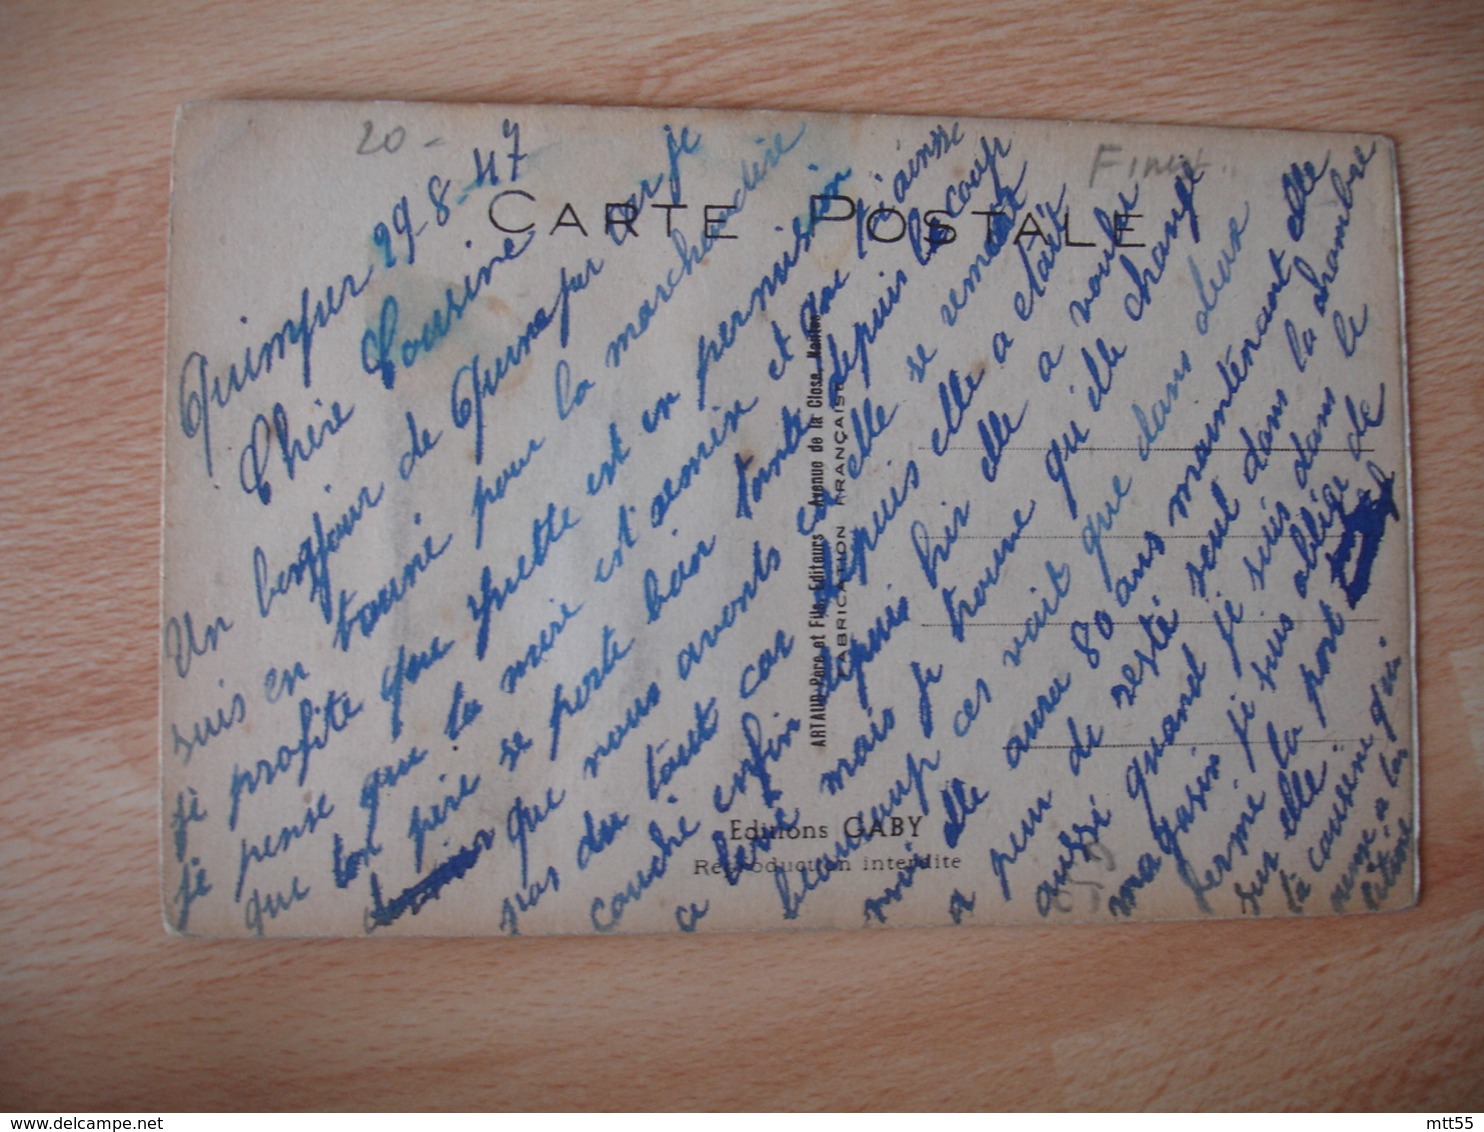 20-
Finist.
CARTE POSTALE
Quimper 29-8-47
Chère Cousine
Un bonjour de Quimper car je
suis en tourné pour la marchandise
je profite que Yvette est en permision
je pense que ta mère est en et que
que ton père se porte bien tante depuis beaucoup
que nous avonts elle se
pas du tout car depuis elle a était
couché enfin depuis hir elle a voulu
ce levé mais je trouve qu'elle change
beaucoup ces vait que dans deux
moi elle aura 80 ans maintenant elle
a peur de resté seul dans la chambre
aussi quand je suis dans le
magasin je suis obligé de
fermé la port
sur elle
la cousine qui
ARTAUD Père et Fils, Editeurs - Avenue de la Close, Nantes
FABRICATION FRANÇAISE
Editions GABY
Reproduction interdite
mtt55